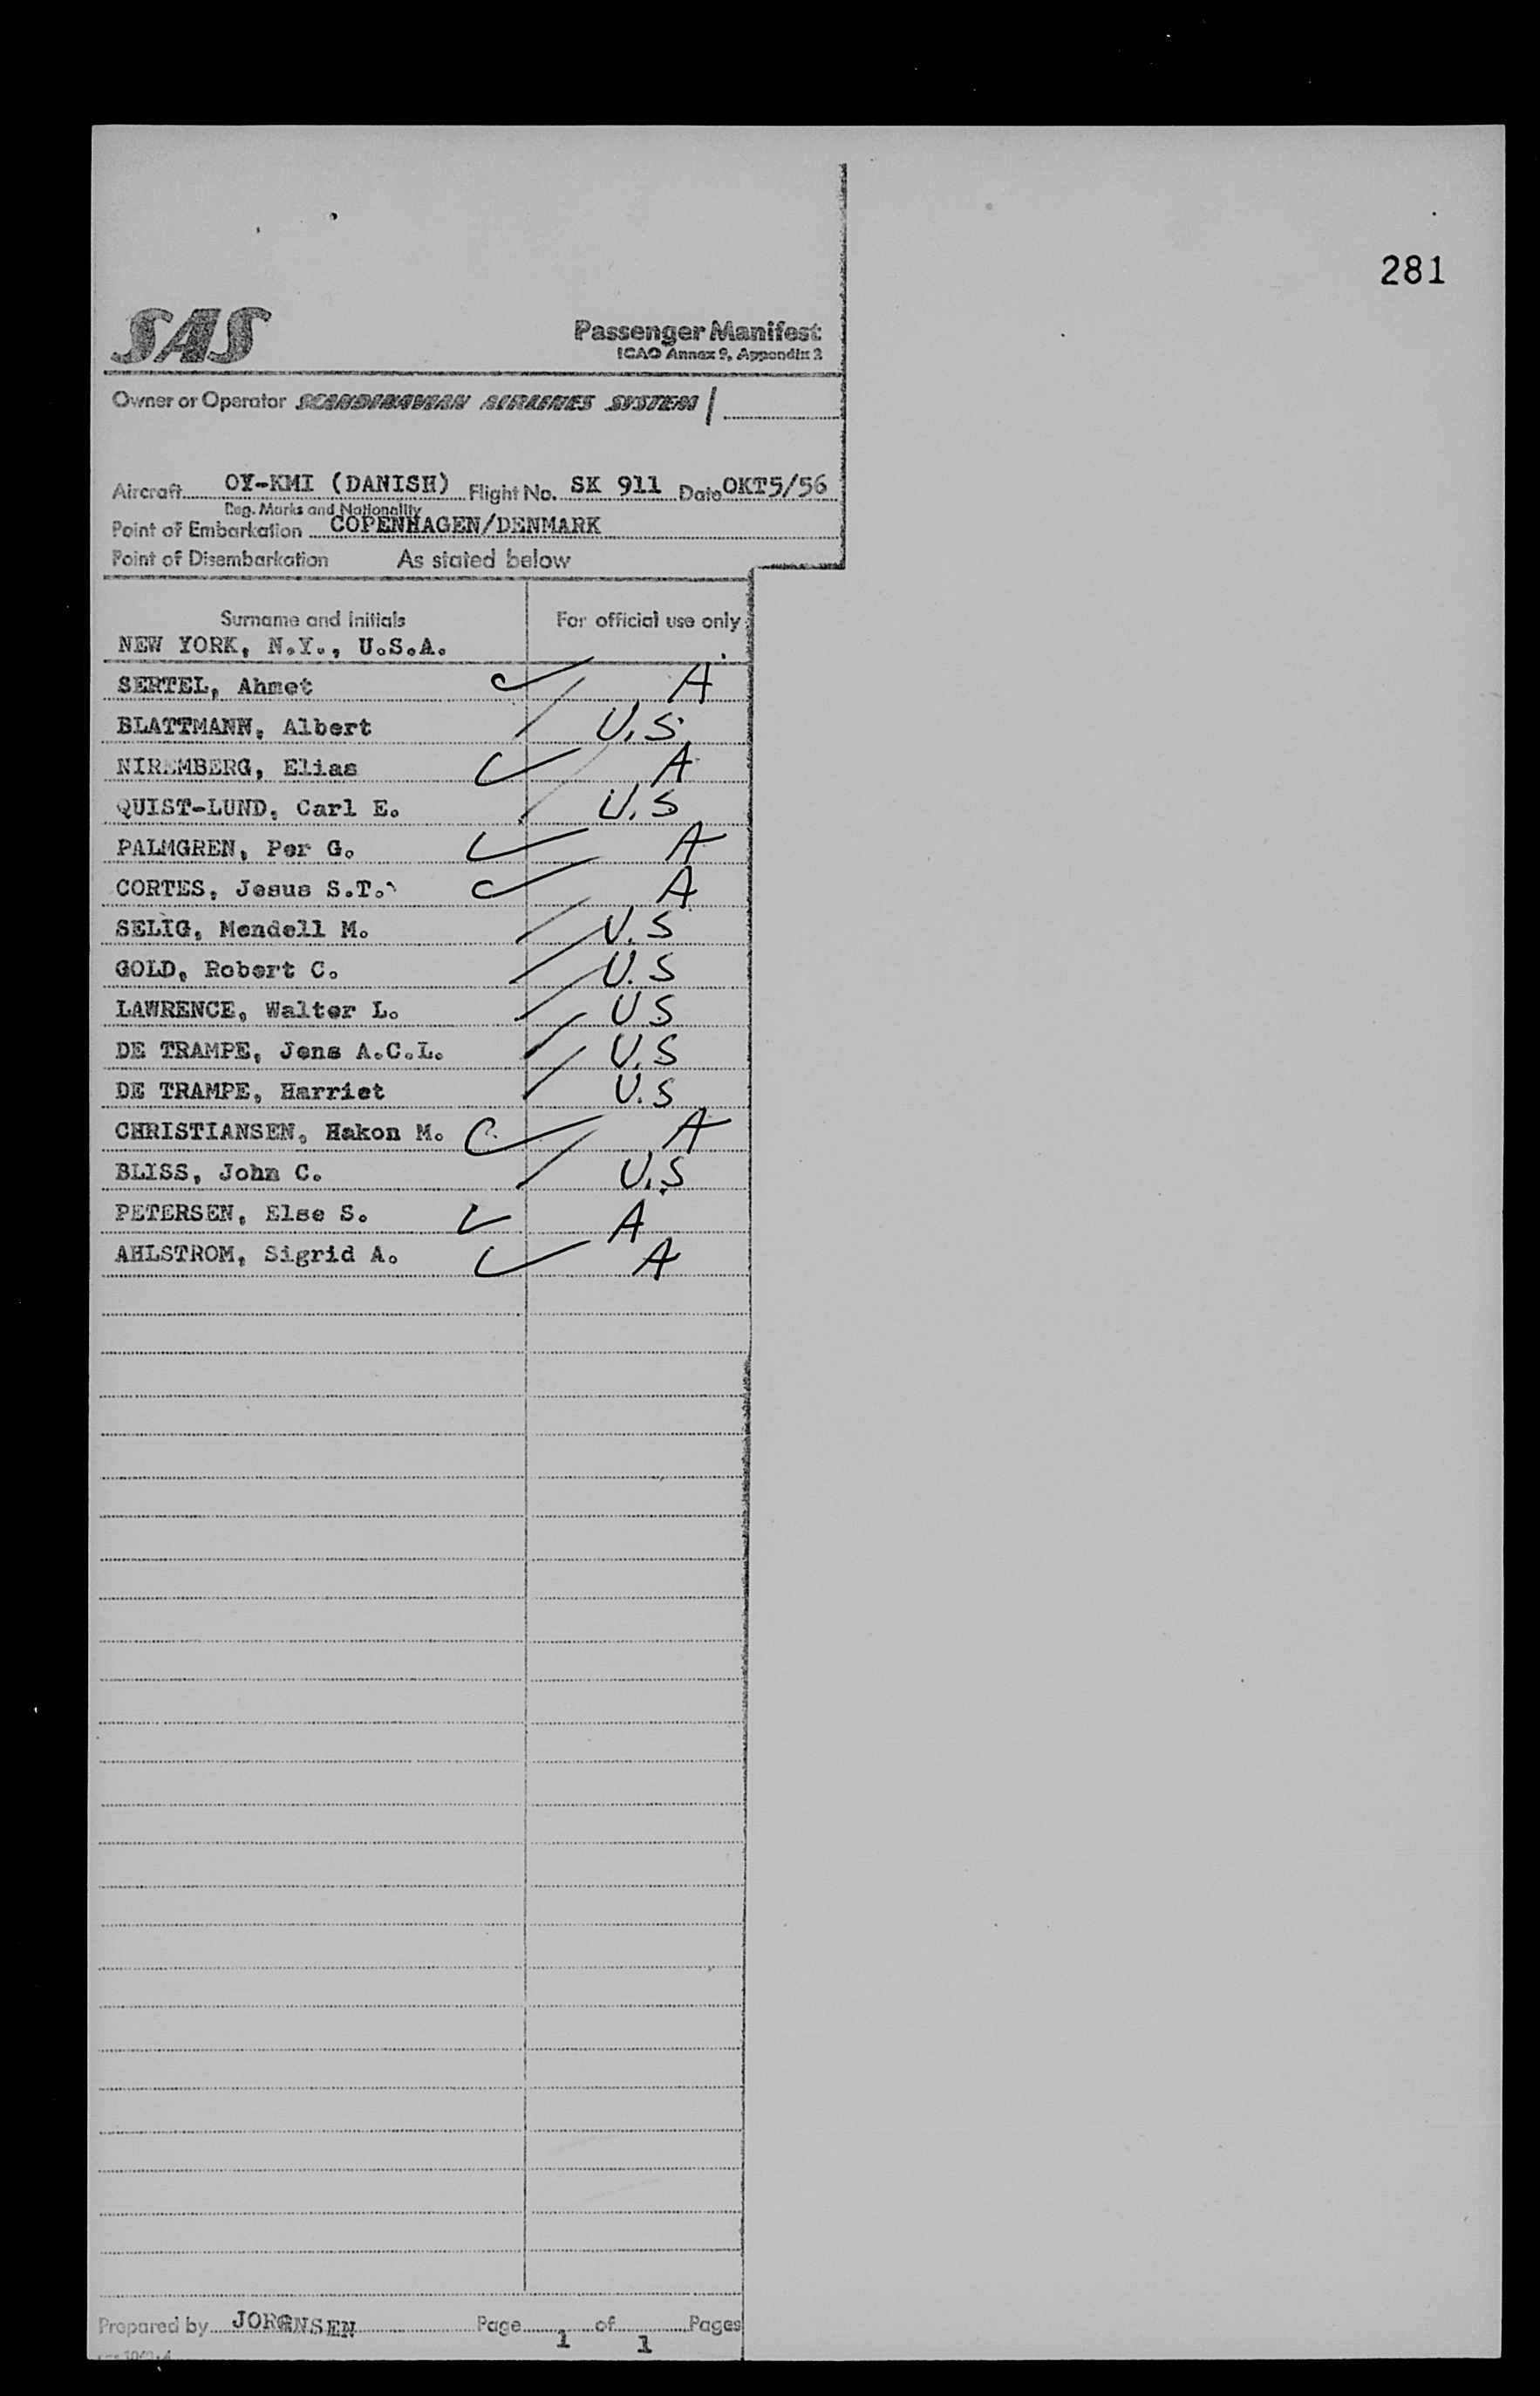 281
SAS
Passenger Manifest
ICAO Annex 9, Appendix 2
Owner or Operator SCANDINAVIAN AIRLINES SYSTEM /
Aircraft OY-KMI (DANISH) Flight No. SK 911 Date OKT5/56
Reg. Marks and Nationality
Point of Embarkation COPENHAGEN/DENMARK
Point of Disembarkation As stated below
Surname and Initials For official use only
NEW YORK, N.Y., U.S.A.
SERTEL, Ahmet A
BLATTMANN, Albert U.S.
NIREMBERG, Elias A
QUIST-LUND, Carl E. U.S
PALMGREN, Per G. A
CORTES, Jesus S.T. A
SELIG, Mendell M. U.S
GOLD, Robert C. U.S
LAWRENCE, Walter L. US
DE TRAMPE, Jens A.C.L. U.S
DE TRAMPE, Harriet U.S
CHRISTIANSEN, Hakon M. A
BLISS, John C. U.S
PETERSEN, Else S. A
AHLSTROM, Sigrid A. A
Prepared by JORGENSEN Page 1 of 1 Pages